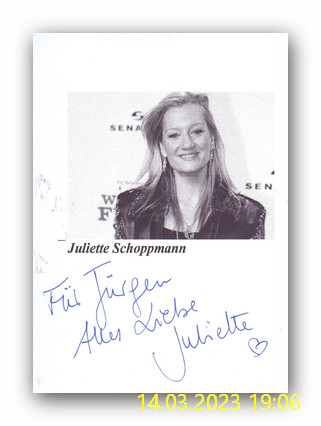 SENA
SEN
W
F
Juliette Schoppmann
Für Jürgen
Alles Liebe
Juliette
14.03.2023 19:06